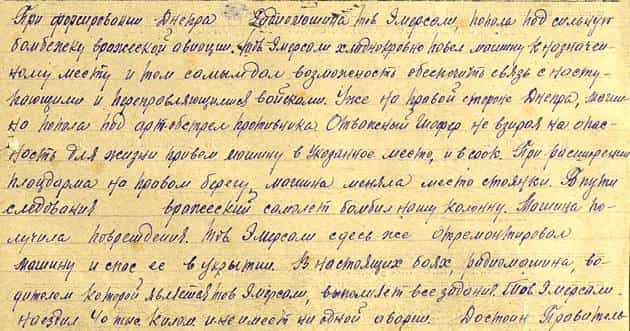 При форсировании Днепра Радиомашина тов Эмерсали, попала под сильную
бомбежку вражеской авиации. Тов Эмерсали хладнокровно повел машину к назначен
ному месту и тем самым дал возможность обеспечить связь с насту
пающими и переправляющимися войсками. Уже на правой стороне Днепра, маши
на попала под артобстрел противника. Отважный шофер не взирая на опас
ность для жизни привел машину в указанное место, и в срок. При расширении
плацдарма на правом берегу, машина меняла место стоянки. В пути
следования вражеский самолет бомбил нашу колонну. Машина по
лучила повреждения. Тов Эмерсали здесь же отремонтировал
машину и спас ее в укрытии. В настоящих боях, радиомашина, во
дителем которой является тов Эмерсали, выполняет все задания. Тов Эмерсали
наездил 40 тыс килом и не имеет ни одной аварии. Достоин Правитель